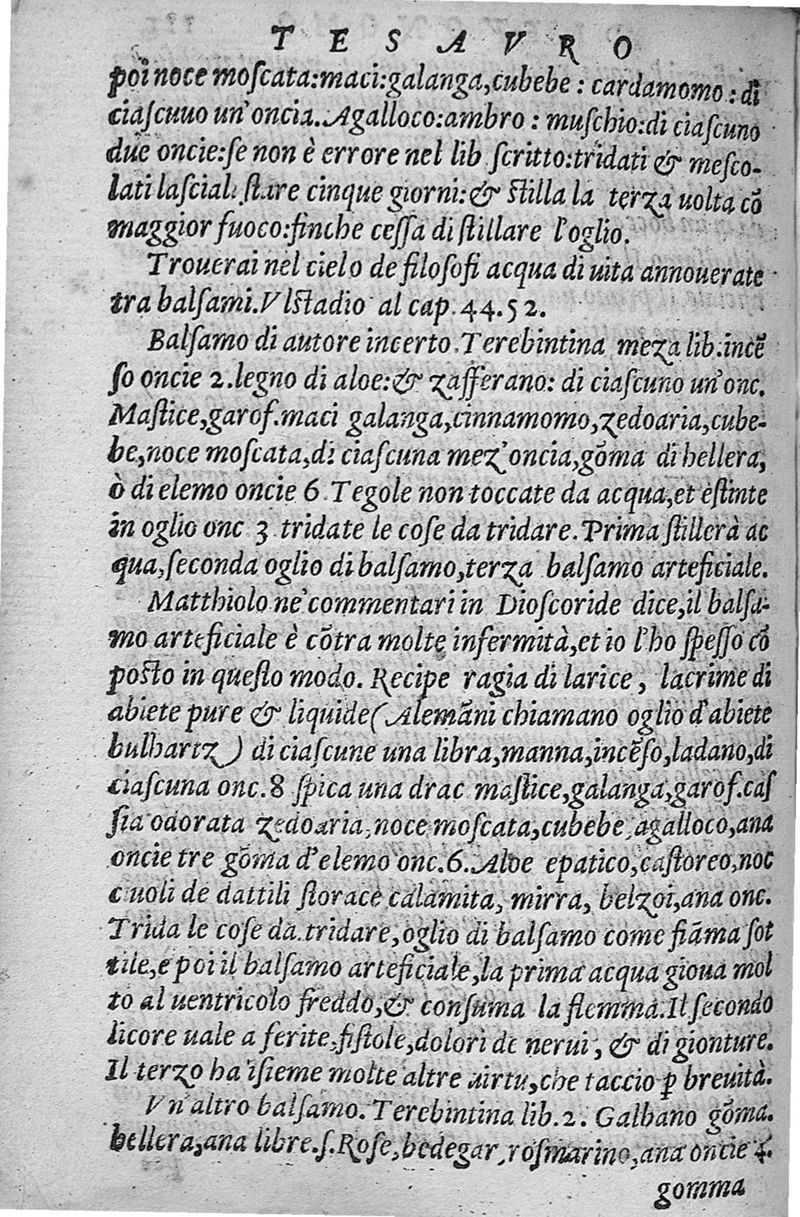 TESAVRO
poi noce moſcata:maci:galanga,cubebe : cardamomo : di
ciaſcuuo un'oncia.Agalloco:ambro : muſchio:di ciaſcuno
due oncie:ſe non è errore nel lib ſcritto:tridati & meſco-
lati laſciali ſtare cinque giorni:& ſtilla la terza uolta cō
maggior fuoco:finche ceſſa di ſtillare l'oglio.
Trouerai nel cielo de filoſofi acqua di uita annouerate
tra balſami.Vlſtadio al cap.44.52.
Balſamo di autore incerto.Terebintina meza lib.incē
ſo oncie 2.legno di aloe:& zafferano: di ciaſcuno un'onc.
Maſtice,garof.maci galanga,cinnamomo,zedoaria,cube-
be,noce moſcata,di ciaſcuna mez'oncia,gōma di hellera,
ò di elemo oncie 6 Tegole non toccate da acqua,et eſtinte
in oglio onc 3 tridate le coſe da tridare.Prima ſtillerà ac
qua,ſeconda oglio di balſamo,terza balſamo arteficiale.
Matthiolo ne' commentari in Dioſcoride dice,il balſa-
mo arteficiale è cōtra molte infermità,et io l'ho ſpeſſo cō
poſto in queſto modo. Recipe ragia di larice, lacrime di
abiete pure & liquide(Alemāni chiamano oglio d'abiete
bulhartz) di ciaſcune una libra,manna,incēſo,ladano,di
ciaſcuna onc.8 ſpica una drac maſtice,galanga,garof.caſ
ſia odorata zedoaria,noce moſcata,cubebe,agalloco,ana
oncie tre gōma d'elemo onc.6.Aloe epatico,caſtoreo,noc
cuoli de dattili ſtorace calamita, mirra, belzoi,ana onc.
Trida le coſe da.tridare,oglio di balſamo come fiāma ſot
tile,e poi il balſamo arteficiale,la prima acqua gioua mol
to al uentricolo freddo,& conſuma la flemma.Il ſecondo
licore uale a ferite,fiſtole,dolori de nerui, & di gionture.
Il terzo ha iſieme molte altre uirtu,che taccio ꝑ breuità.
Vn'altro balſamo. Terebintina lib.2. Galbano gōma.
hellera,ana libre.ſ.Roſe,bedegar,roſmarino,ana oncie 4.
gomma